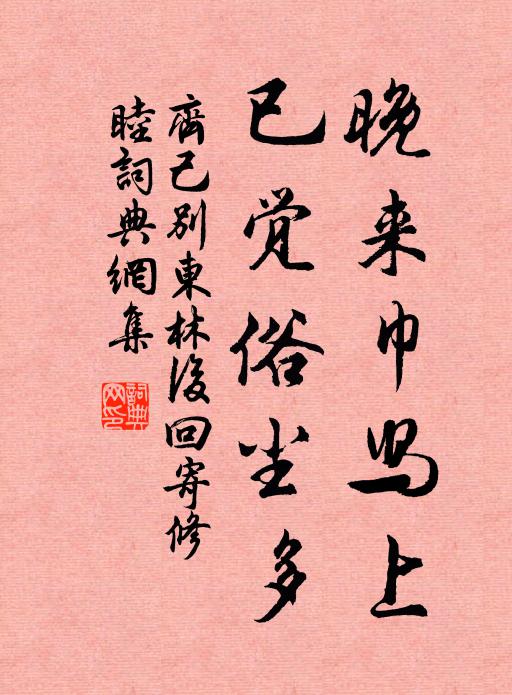 晚来巾舄上
已觉俗尘多
齊己别東林後回寄修
睦詞典網集
詞典
网印